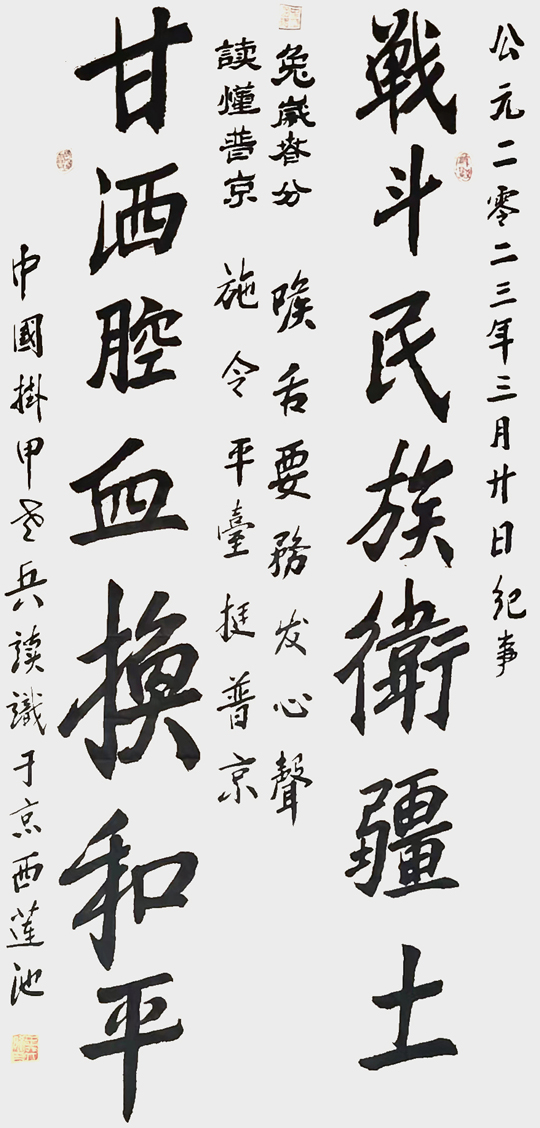 公元二零二三年三月廿日纪事
戰斗民族衛疆土
兔嵗春分
喉舌要務发心聲
读懂普京
施令平臺挺普京
甘洒腔血換和平
中國掛甲老兵读識于京西蓮池